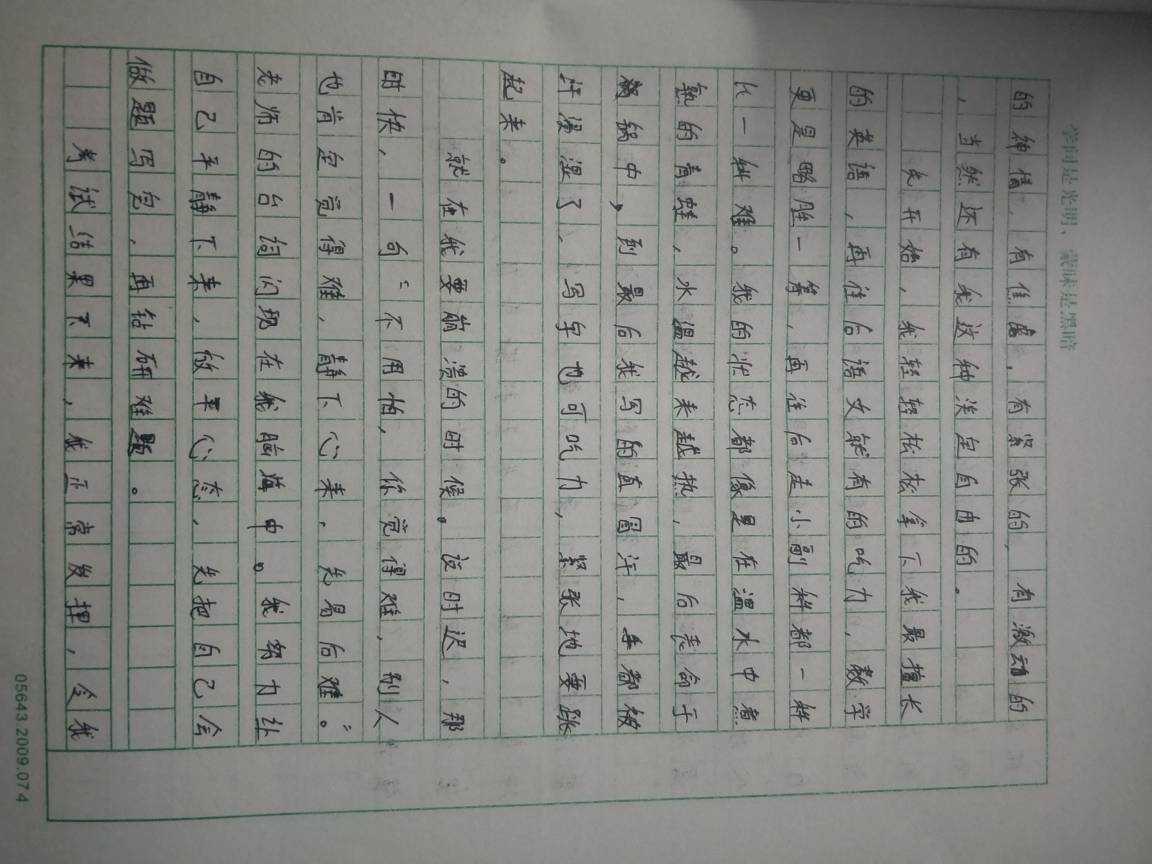 学问是光明、蒙昧是黑暗
的神情，有住虑，有紧张的，有激动的
，当然还有我这种淡定自由的。
先开始，我轻轻松松拿下我最擅长
的英语，再往后语文就有的吃力，数学
更是略胜一筹，再往后走小副科都一科
比一科难。我的状态都像是在温水中煮
熟的青蛙，水温越来越热，最后丧命于
锅中，到最后我写的直冒汗，手都被
汗浸湿了，写字也可吃力，紧张地要跳
起来。
就在我要崩溃的时候。这时迟，那
时快，一句“不用怕，你觉得难，别人
也肯定觉得难，静下心来，先易后难。”
老师的台词闪现在我脑海中。我努力让
自己平静下来，放平心态，先把自己会
做题写完，再钻研难题。
考试结果下来，我正常发挥，令我
05643.2009.074